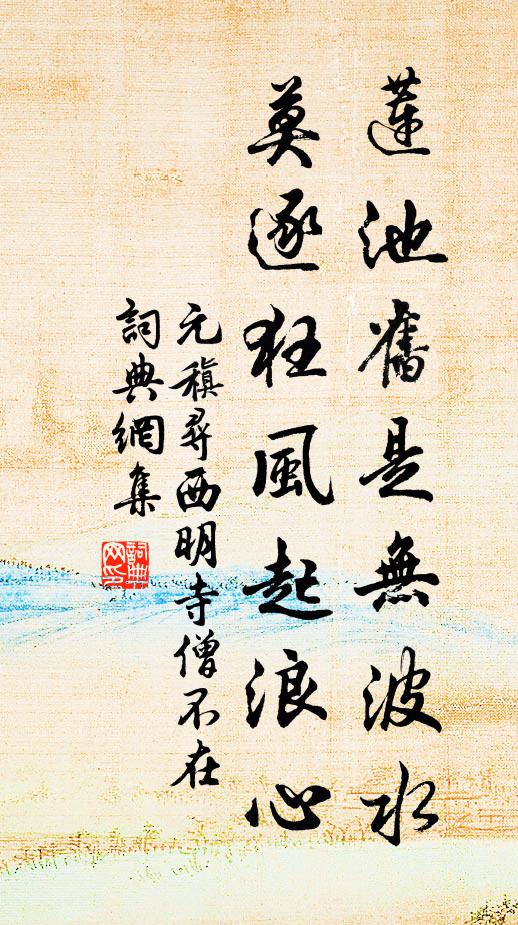 蓮池舊是無波水
莫逐狂風起浪心
元稹尋西明寺僧不在
詞典網集
詞典網印